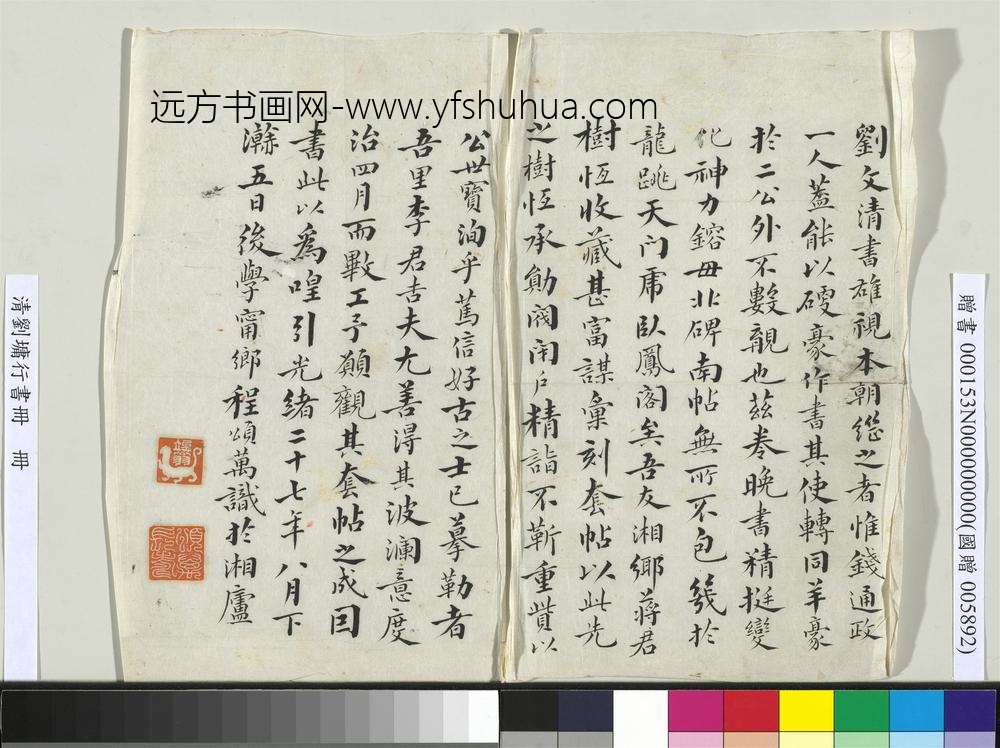 远方书画网-www.yfshuhua.com
劉文清書雄視本朝継之者惟錢通政
一人蓋能以硬豪作書其使轉同羊豪
於二公外不數覯也茲卷晚書精挺變
化神力鎔毋北碑南帖無所不包幾於
龍跳天门虎臥鳳阁矣吾友湘鄉蔣君
樹恆收藏甚富謀彙刻套帖以此先
之樹恆承勛阀闭户精詣不靳重貲以
公世寶洵乎篤信好古之士已摹勒者
吾里李君吉夫尤善得其波澜意度
治四月而斁工予願觀其套帖之成因
書此以為喤引光緒二十七年八月下
澣五日後學甯鄉程頌萬識於湘廬
贈書 000153N000000000(國贈 005892)
清劉墉行書冊 冊